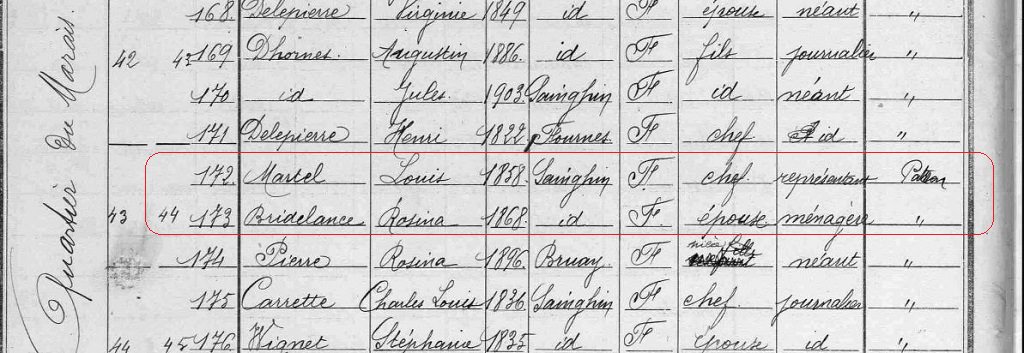 Quartier du Marais.
168. Delepierre Virginie 1849 id F épouse néant "
42 43 169 Dhornes Augustin 1886. id F fils journalier "
170 id Jules 1903. Sainghin F id néant "
171 Delepierre Henri 1822. Fournes F chef id "
172. Martel Louis 1858. Sainghin F. chef. représentant Patron
43 44 173 Bridelance Rosina 1868. id F. épouse ménagère "
174 Pierre Rosina 1896. Bruay. F nièce néant "
175 Carrette Charles Louis 1836 Sainghin F chef. journalier "
44 45 176. Wignet Stéphanie 1835 id F épouse id "